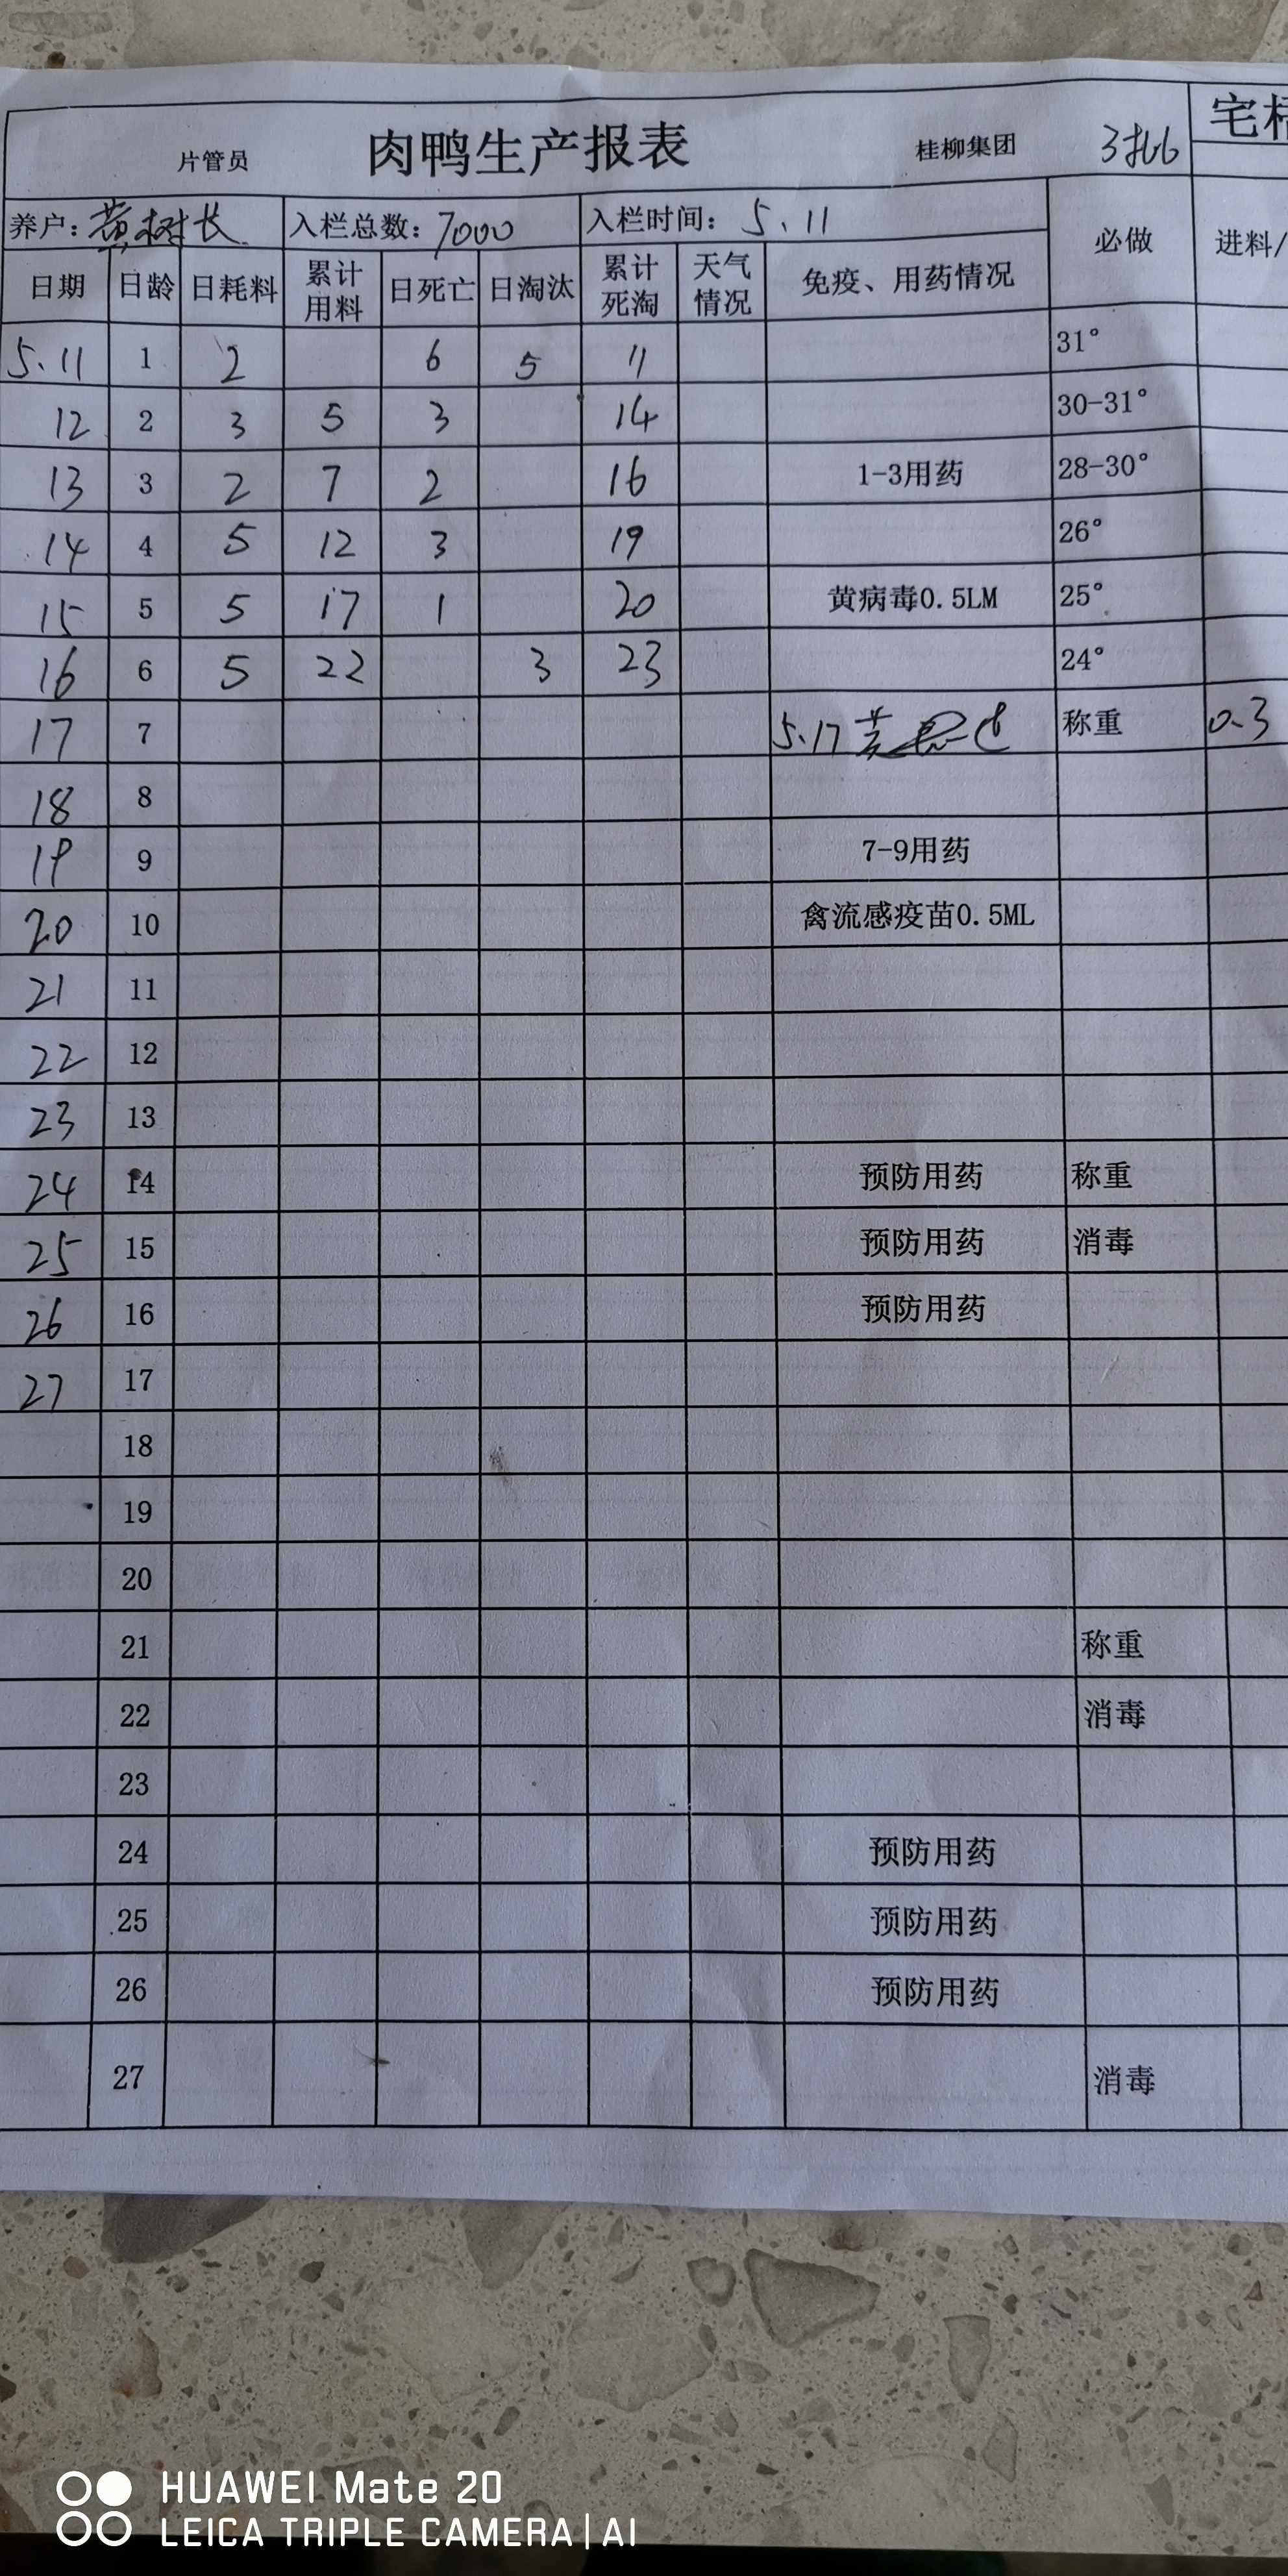 片管员 肉鸭生产报表 桂柳集团 3批
养户：黄树长 入栏总数：7000 入栏时间：5.11 必做 进料/
日期 日龄 日耗料 累计用料 日死亡 日淘汰 累计死淘 天气情况 免疫、用药情况
5.11 1 2 6 5 11 31°
12 2 3 5 3 14 30-31°
13 3 2 7 2 16 1-3用药 28-30°
14 4 5 12 3 19 26°
15 5 5 17 1 20 黄病毒0.5LM 25°
16 6 5 22 3 23 24°
17 7 5.17 称重 0.3
18 8
19 9 7-9用药
20 10 禽流感疫苗0.5ML
21 11
22 12
23 13
24 14 预防用药 称重
25 15 预防用药 消毒
26 16 预防用药
27 17
18
19
20
21 称重
22 消毒
23
24 预防用药
25 预防用药
26 预防用药
27 消毒
HUAWEI Mate 20
LEICA TRIPLE CAMERA | AI